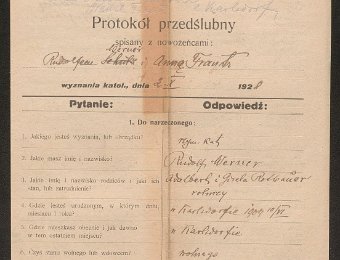 Karlsdorf,
Protokół przedślubny
spisany z nowożeńcami:
Werner
Rudolfem i Anną Frank
wyznania katol., dnia 2. X 1928
Pytanie: Odpowiedź:
1. Do narzeczonego:
1. Jakiego jesteś wyznania, lub obrządku? rzym. kat.
2. Jakie masz imię i nazwisko? Rudolf Werner
3. Jakie imię i nazwisko rodziców i jaki ich Adalbert i
stan, lub zatrudnienie? rolnicy
4. Gdzie jesteś urodzonym, w którym dniu, w Karlsdorfie 1904
miesiącu i roku?
5. Gdzie mieszkasz obecnie i jak dawno w Karlsdorfie
w tem ostatniem miejscu?
6. Czyś stanu wolnego lub wdowiec? wolnego